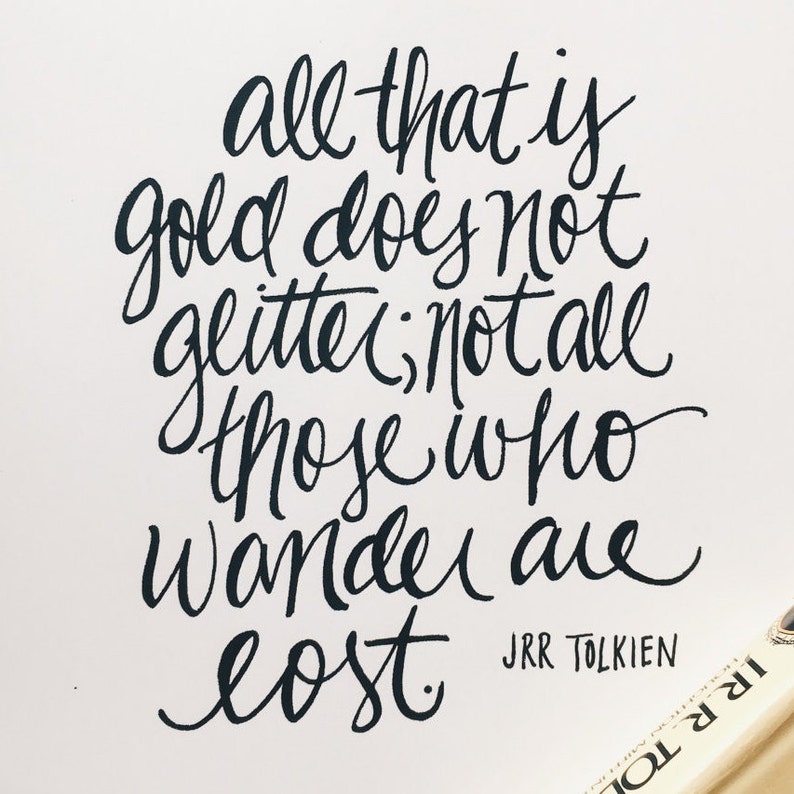 all that is
gold does not
glitter; not all
those who
wander are
lost.
JRR TOLKIEN
J.R.R. TOL
HOUGHTON MIFFLIN